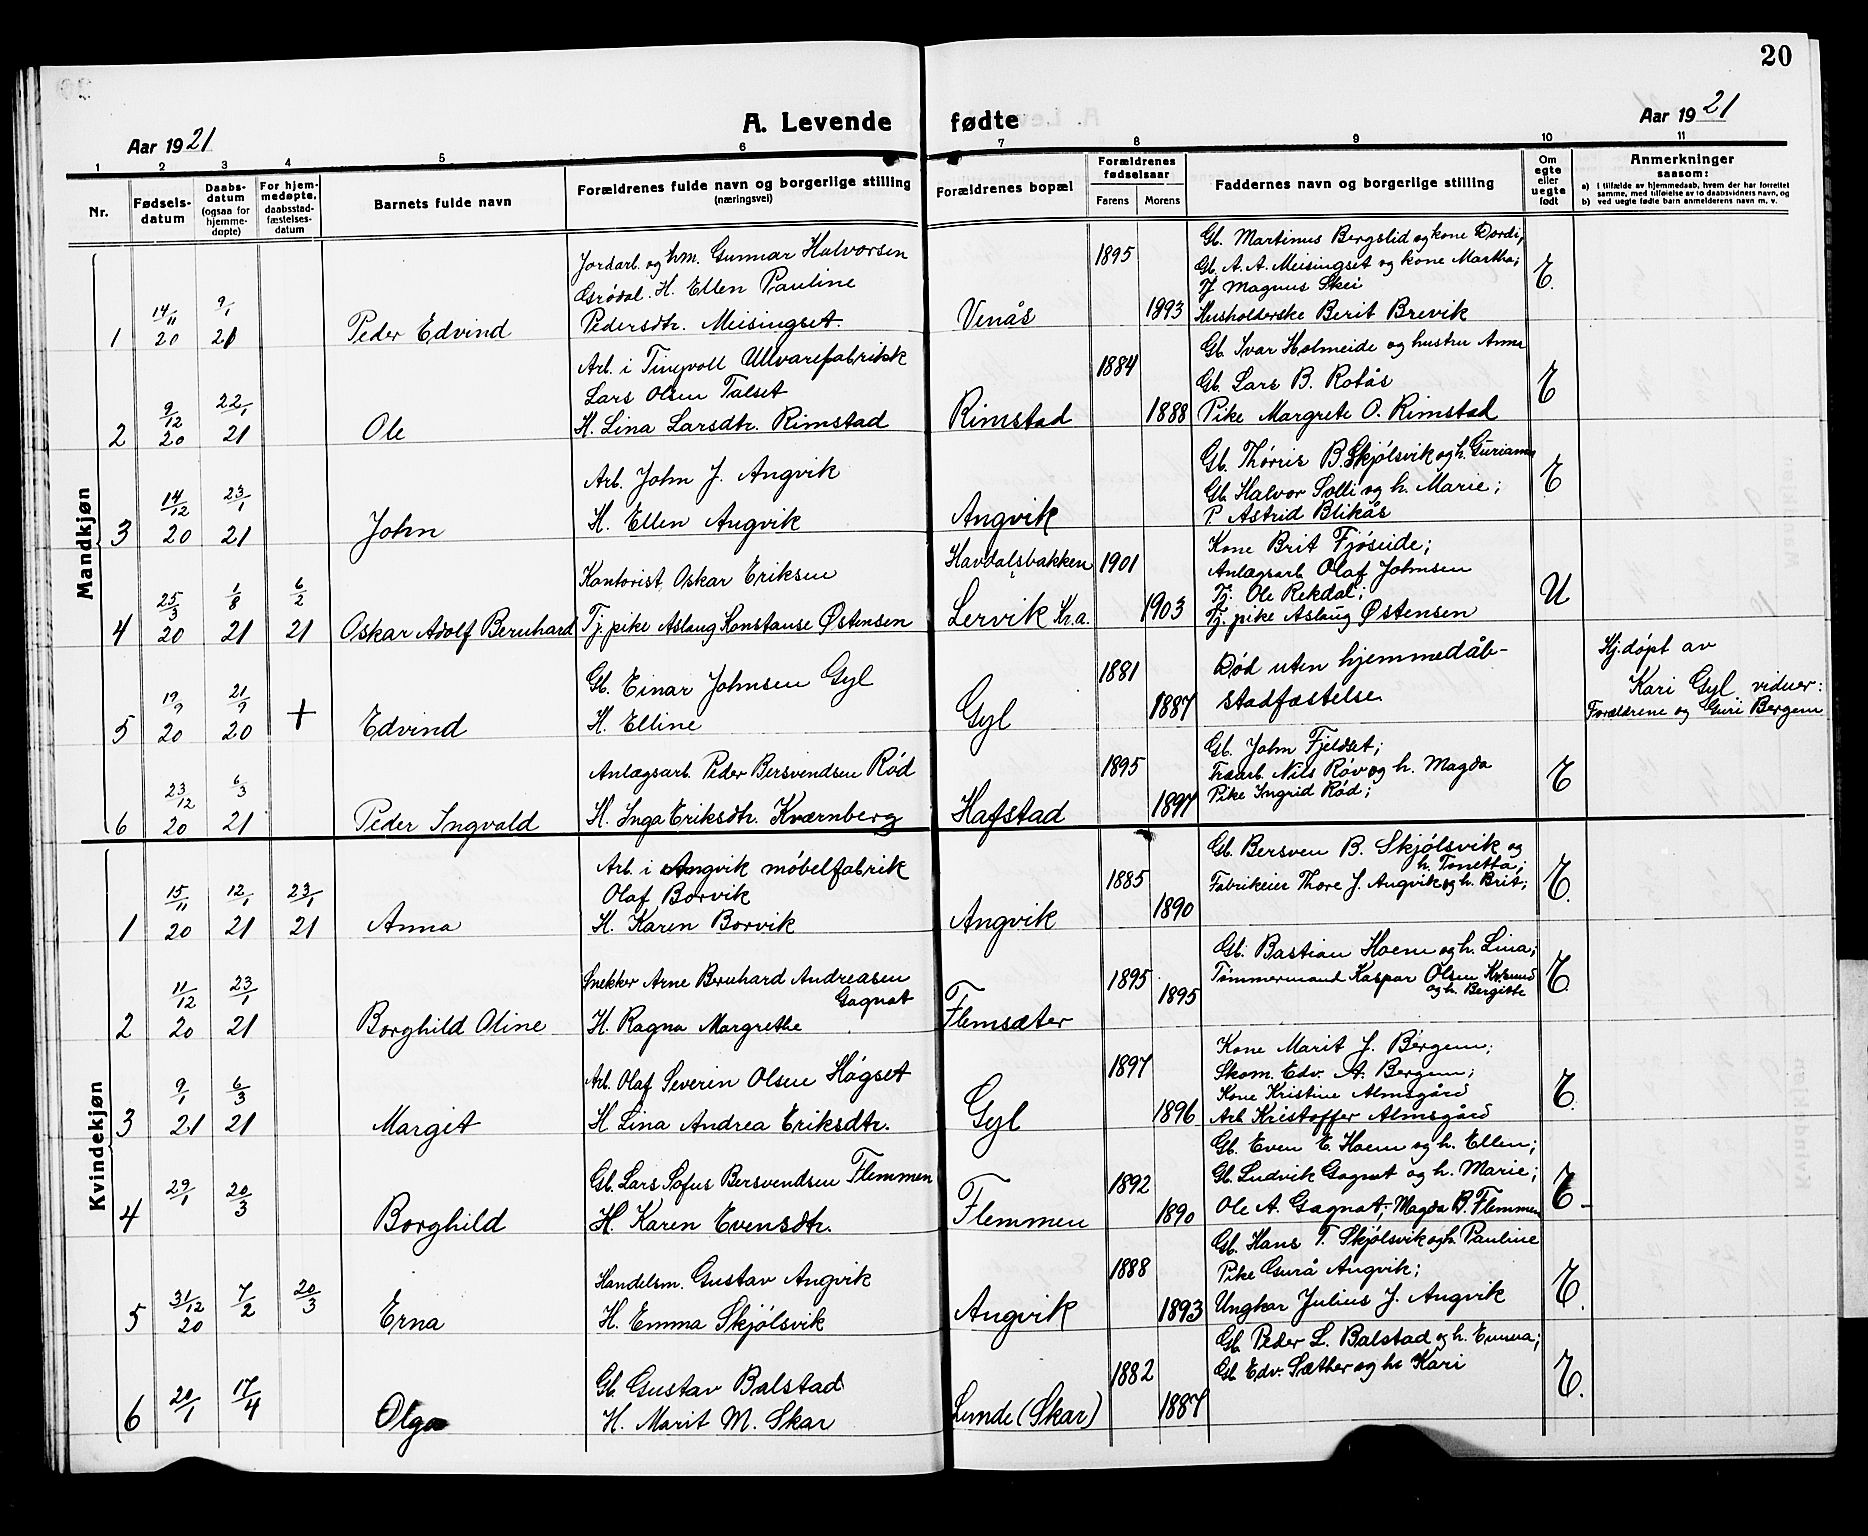 20
Aar 1921
A. Levende fødte
Aar 1921
1 2 3 4 5 6 7 8 9 10 11
Nr.
Fødsels-
datum
Daabs-
datum
(ogsaa for
hjemme-
døpte)
For hjem-
medøpte,
daabsstad-
fæstelses-
datum
Barnets fulde navn
Forældrenes fulde navn og borgerlige stilling
(næringsvei)
Forældrenes bopæl
Forældrenes
fødselsaar
Farens Morens
Faddernes navn og borgerlige stilling
Om
egte
eller
uegte
født
Anmerkninger
saasom:
a) i tilfælde av hjemmedaab, hvem der har forrettet
samme, med tilføielse av to daabsvidners navn, og
b) ved uegte fødte barn anmelderens navn m. v.
Mandkjøn
1 14/11 20 9/1 21 Peder Edvind
Jordarb. og hm. Gunnar Halvorsen
Grødal. H. Ellen Pauline
Pedersdtr. Meisingset.
Venås 1895 1893
Gb. Martinus Bergslid og kone Dordi,
Gb. A. A. Meisingset og kone Martha;
Magnus Skei
Husholderske Berit Brevik
E.
2 9/12 20 22/1 21 Ole
Arb. i Tingvoll Ullvarefabrikk
Lars Olsen Talset
H. Lina Larsdtr. Rimstad
Rimstad 1884 1888
Gb. Ivar Holmeide og hustru Anna
Gb. Lars B. Rotås
Pike Margrete O. Rimstad
E
3 14/12 20 23/1 21 John
Arb. John J. Angvik
H. Ellen Angvik
Angvik
Gb. Thørris B. Skjølsvik og h. Gurianna
Gb. Halvor Solli og h. Marie;
P Astrid Blikås
E
4 25/3 20 1/8 21 6/2 21 Oskar Adolf Bernhard
Kontorist Oskar Eriksen
Tj. pike Aslaug Konstanse Østensen
Havdalsbakken
Lervik Kr.a.
1901 1903
Kone Brit Fjøseide;
Anlægsarb Olaf Johnsen
Tj. Ole Rekdal;
Tj. pike Aslaug Østensen
U
5 19/9 20 21/9 20 + Edvind
Gb. Einar Johnsen Gyl
H. Elline
Gyl 1881 1887
Død uten hjemmedåb-
stadfæstelse
Hj.døpt av
Kari Gyl. vidner:
Forældrene og Guri Bergem
6 23/12 20 6/3 21 Peder Ingvald
Anlægsarb. Peder Bersvendsen Rød
H. Inga Eriksdtr. Kværnberg
Hafstad 1895 1897
Gb. John Fjeldset;
Træarb. Nils Røv og h. Magda
Pike Ingrid Rød;
E
Kvindekjøn
1 15/11 20 12/1 21 23/1 21 Anna
Arb. i Angvik møbelfabrik
Olaf Borvik
H. Karen Borvik
Angvik 1885 1890
Gb. Bersven B. Skjølsvik og
h. Tonetta;
Fabrikeier Thore J. Angvik og h. Brit;
E.
2 11/12 20 23/1 21 Borghild Oline
Snekker Arne Bernhard Andreasen
Gagnat
H. Ragna Margrethe
Flemsæter 1895 1895
Gb. Bastian Hoem og h. Lina;
Tømmermand Kaspar Olsen Kr.sund
og h. Bergitte
E.
3 9/1 21 6/3 21 Margit
Arb. Olaf Severin Olsen Høgset
H Lina Andrea Eriksdtr.
Gyl 1897 1896
Kone Marit J. Bergem;
Skom. Edv. A. Bergem;
Kone Kristine Almsgård
Arb Kristoffer Almsgård
E.
4 29/1 20/3 Borghild
Gb. Lars Sofus Bersvendsen Flemmen
H. Karen Evensdtr.
Flemmen 1892 1890
Gb. Even E. Hoem og h. Ellen;
Gb. Ludvik Gagnat og h. Marie;
Ole A. Gagnat; Magda B. Flemmen
E
5 31/12 20 7/2 20/3 Erna
Handelsm. Gustav Angvik
H. Emma Skjølsvik
Angvik 1888 1893
Gb. Hans T. Skjølsvik og h. Pauline
Pike Gurå Angvik;
Ungkar Julius J. Angvik
E.
6 20/1 17/4 Olga
Gb. Gustav Balstad
H. Marit M. Skar
Lunde (Skar) 1882 1887
Gb. Peder L. Balstad og h. Emma;
Gb Edv. Sæther og h Kari
E.